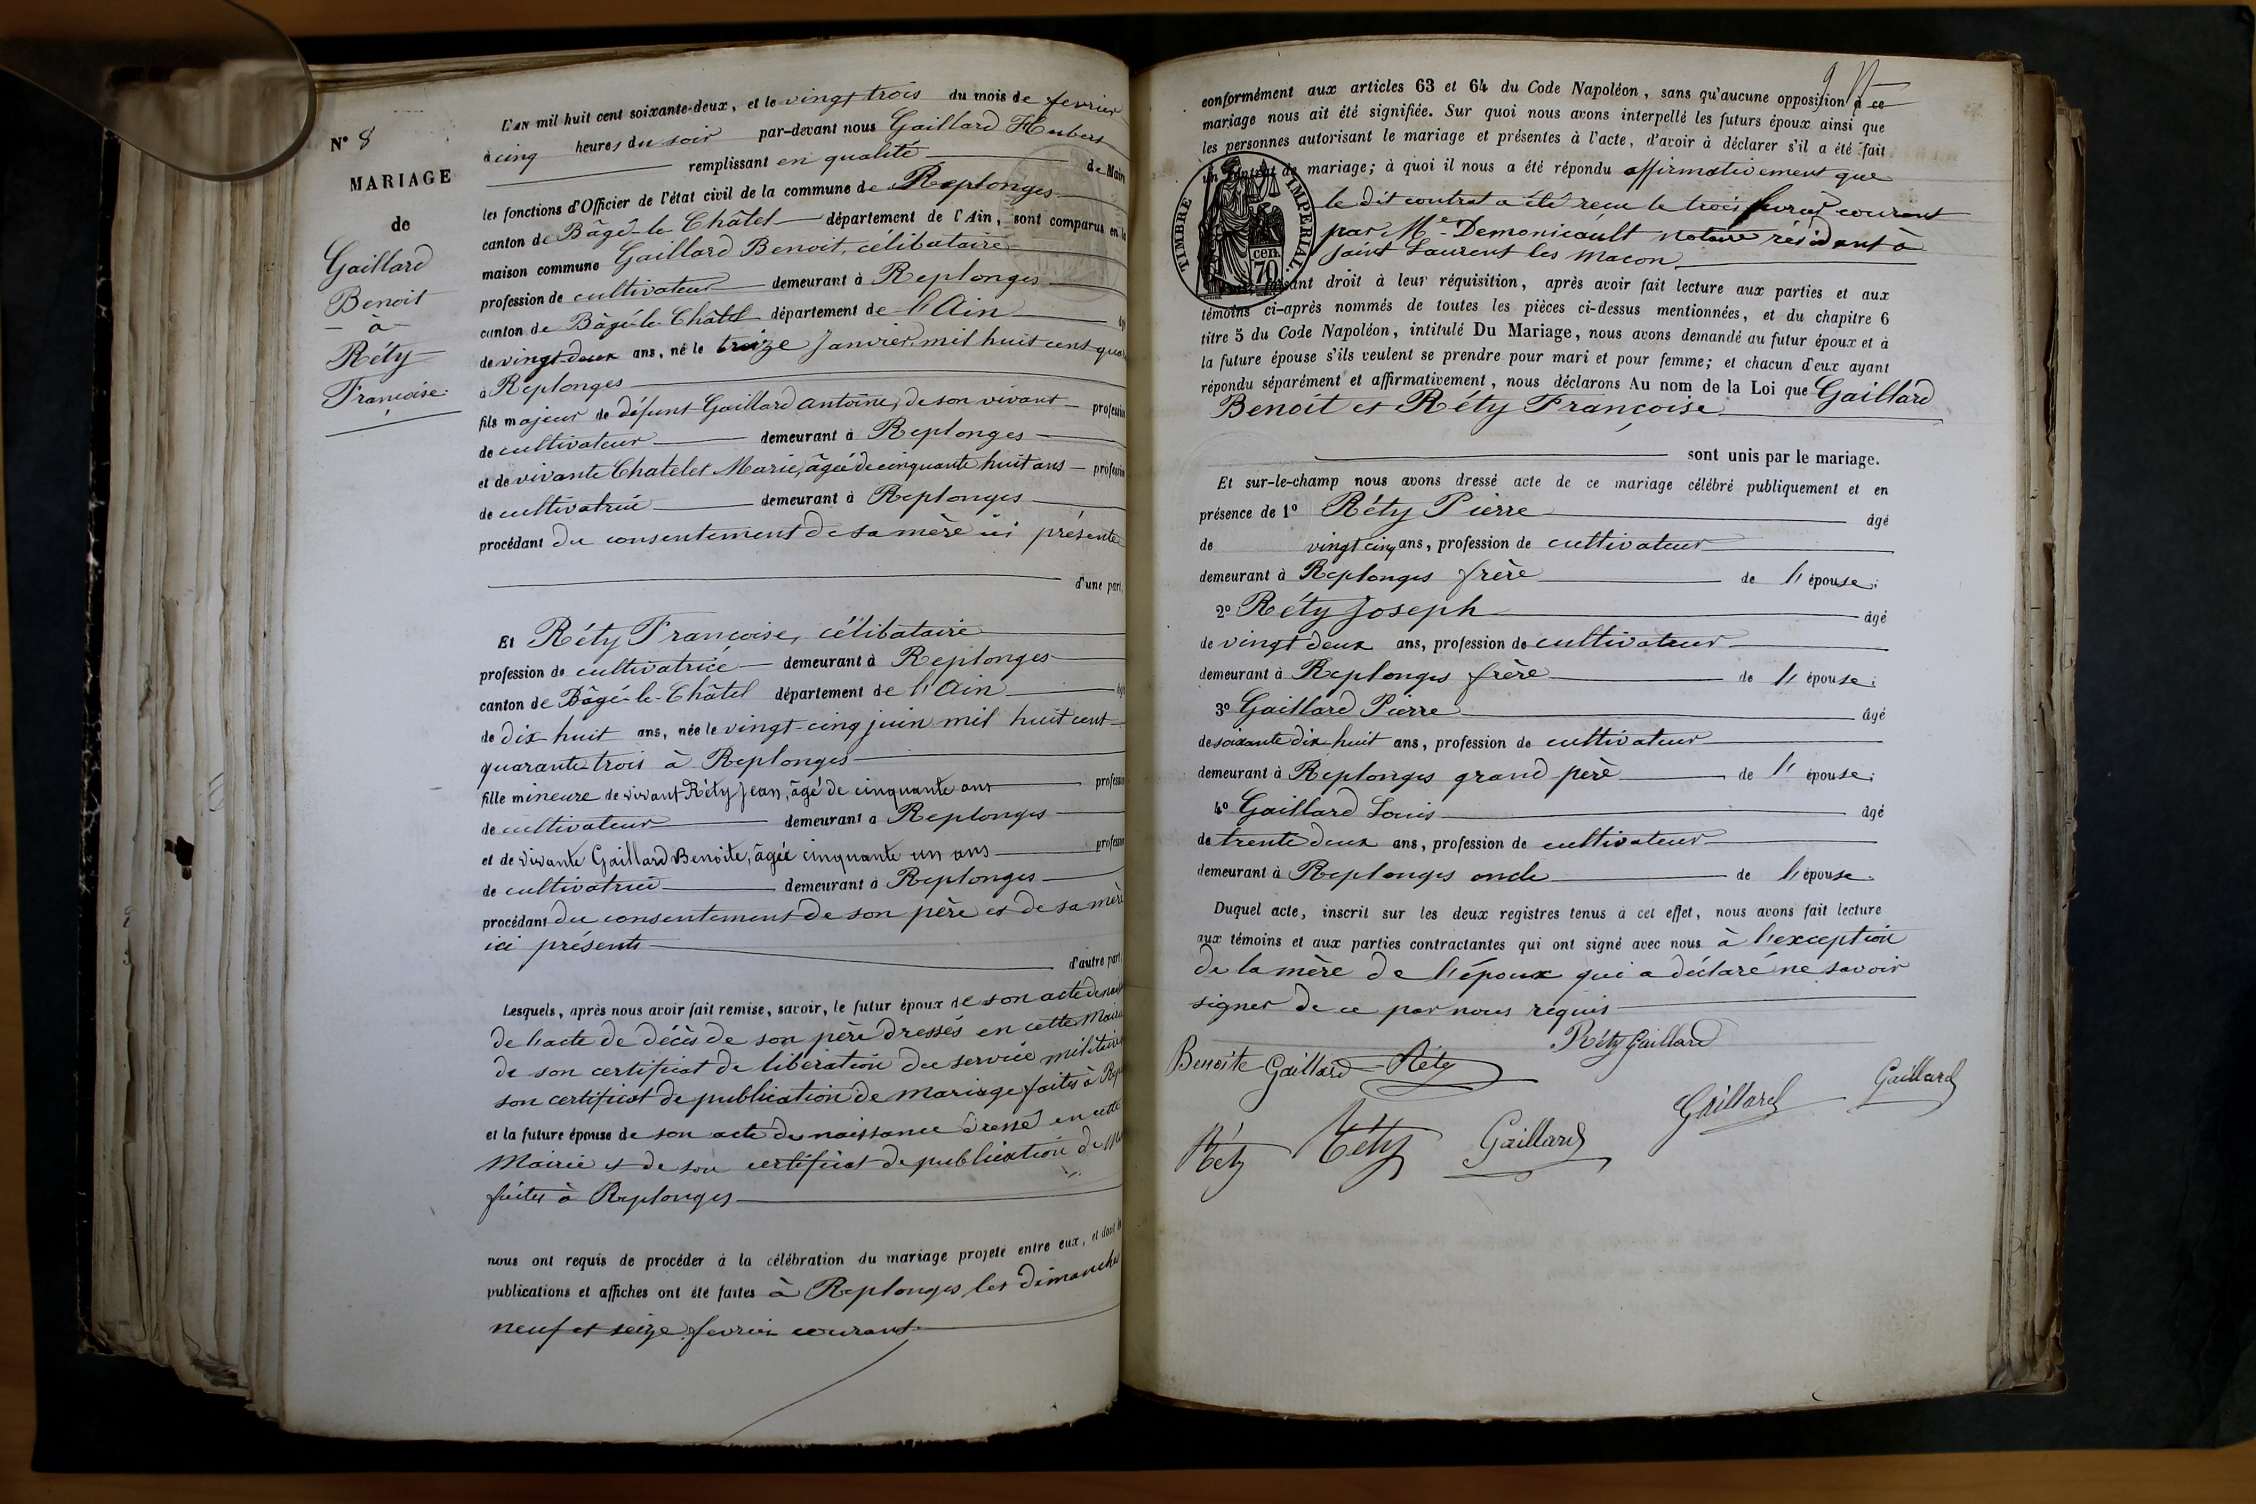 N° 8
MARIAGE
de
Gaillard
Benoit
à
Réty
Françoise
L'AN mil huit cent soixante-deux, et le vingt trois du mois de fevrier
à cinq heures du soir par-devant nous Gaillard Hubert
remplissant en qualité de Maire
les fonctions d'Officier de l'état civil de la commune de Replonges
canton de Bâgé-le-Châtel département de l'Ain, sont comparus en la
maison commune Gaillard Benoit, célibataire
profession de cultivateur demeurant à Replonges
canton de Bâgé-le-Châtel département de l'Ain
de vingt-deux ans, né le treize Janvier, mil huit cent
à Replonges
fils majeur de défunt Gaillard Antoine, de son vivant profession
de cultivateur demeurant à Replonges
et de vivante Chatelet Marie, âgée de cinquante huit ans profession
de cultivatrice demeurant à Replonges
procédant du consentement de sa mère ici présente
d'une part,
Et Réty Françoise, célibataire
profession de cultivatrice demeurant à Replonges
canton de Bâgé-le-Châtel département de l'Ain
de dix huit ans, née le vingt-cinq juin mil huit cent
quarante trois à Replonges
fille mineure de vivant Réty Jean, âgé de cinquante ans profession
de cultivateur demeurant à Replonges
et de vivante Gaillard Benoite, âgée cinquante un ans profession
de cultivatrice demeurant à Replonges
procédant du consentement de son père et de sa mère
ici présents
d'autre part,
Lesquels, après nous avoir fait remise, savoir, le futur époux de son acte de
de l'acte de décès de son père dressés en cette Mairie
de son certificat de libération du service militaire
son certificat de publication de mariage faites à
et la future épouse de son acte de naissance dressé en cette
Mairie et de son certificat de publication de
faites à Replonges
nous ont requis de procéder à la célébration du mariage projeté entre eux, et dont les
publications et affiches ont été faites à Replonges les dimanches
neuf et seize fevrier courant
conformément aux articles 63 et 64 du Code Napoléon, sans qu'aucune opposition à ce
mariage nous ait été signifiée. Sur quoi nous avons interpellé les futurs époux ainsi que
les personnes autorisant le mariage et présentes à l'acte, d'avoir à déclarer s'il a été fait
un contrat de mariage; à quoi il nous a été répondu affirmativement que
le dit contrat a été reçu le trois fevrier courant
par Me Demonicault notaire résidant à
Saint Laurent les Macon
TIMBRE IMPERIAL.
cen.
70
droit à leur réquisition, après avoir fait lecture aux parties et aux
témoins ci-après nommés de toutes les pièces ci-dessus mentionnées, et du chapitre 6
titre 5 du Code Napoléon, intitulé Du Mariage, nous avons demandé au futur époux et à
la future épouse s'ils veulent se prendre pour mari et pour femme; et chacun d'eux ayant
répondu séparément et affirmativement, nous déclarons Au nom de la Loi que Gaillard
Benoit et Réty Françoise
sont unis par le mariage.
Et sur-le-champ nous avons dressé acte de ce mariage célébré publiquement et en
présence de 1° Réty Pierre âgé
de vingt cinq ans, profession de cultivateur
demeurant à Replonges frère de l'épouse;
2° Réty Joseph âgé
de vingt deux ans, profession de cultivateur
demeurant à Replonges frère de l'épouse;
3° Gaillard Pierre âgé
de soixante dix huit ans, profession de cultivateur
demeurant à Replonges grand père de l'épouse;
4° Gaillard Louis âgé
de trente deux ans, profession de cultivateur
demeurant à Replonges oncle de l'épouse.
Duquel acte, inscrit sur les deux registres tenus à cet effet, nous avons fait lecture
aux témoins et aux parties contractantes qui ont signé avec nous à l'exception
de la mère de l'époux qui a déclaré ne savoir
signer de ce par nous requis
Réty Gaillard
Benoite Gaillard Réty
Gaillard Gaillard
Réty Réty Gaillard